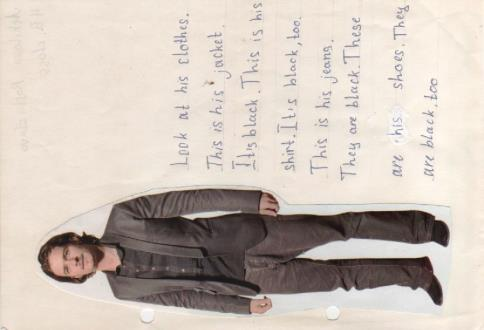 Look at his clothes.
This is his jacket.
It's black. This is his
shirt. It's black, too.
This is his jeans.
They are black. These
are his shoes. They
are black, too